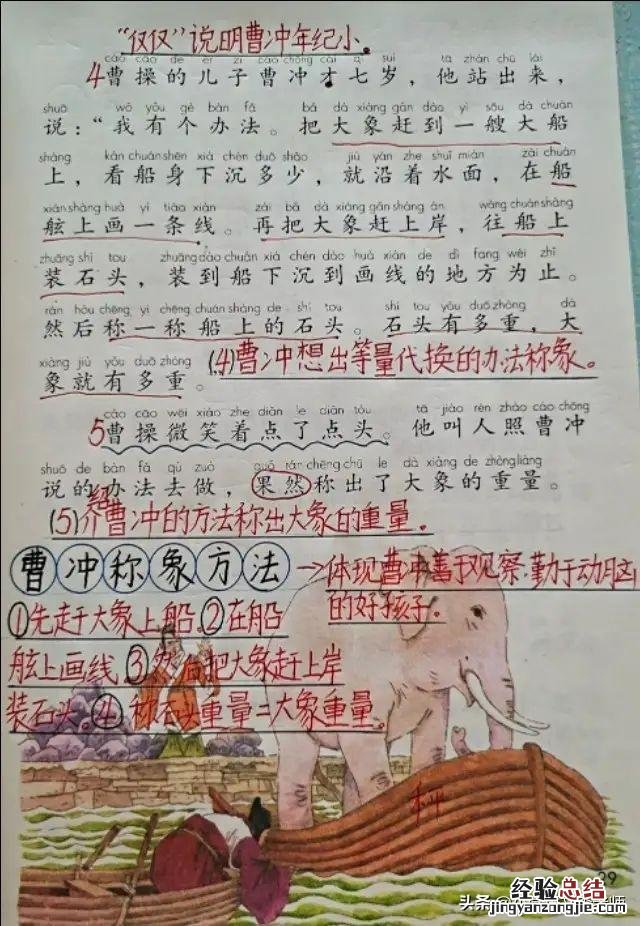 “仅仅”说明曹冲年纪小。
cáo cāo de ér zi cáo chōng cái qī suì tā zhàn chū lái
4曹操的儿子曹冲才七岁，他站出来，
shuō wǒ yǒu gè bàn fǎ bǎ dà xiàng gǎn dào yì sōu dà chuán
说：“我有个办法。把大象赶到一艘大船
shàng kàn chuán shēn xià chén duō shǎo jiù yán zhe shuǐ miàn zài chuán
上，看船身下沉多少，就沿着水面，在船
xián shàng huà yì tiáo xiàn zài bǎ dà xiàng gǎn shàng àn wǎng chuán shàng
舷上画一条线。再把大象赶上岸，往船上
zhuāng shí tou zhuāng dào chuán xià chén dào huà xiàn de dì fang wéi zhǐ
装石头，装到船下沉到画线的地方为止。
rán hòu chēng yi chēng chuán shàng de shí tou shí tou yǒu duō zhòng dà
然后称一称船上的石头。石头有多重，大
xiàng jiù yǒu duō zhòng
象就有多重。
(4)曹冲想出等量代换的办法称象。
cáo cāo wēi xiào zhe diǎn le diǎn tóu tā jiào rén zhào cáo chōng
5曹操微笑着点了点头。他叫人照曹冲
shuō de bàn fǎ qù zuò guǒ rán chēng chū le dà xiàng de zhòng liàng
说的办法去做，果然称出了大象的重量。
(5)介绍曹冲的方法称出大象的重量。
曹冲称象方法→体现曹冲善于观察，勤于动脑
的好孩子。
①先赶大象上船。②在船
舷上画线。③然后把大象赶上岸
装石头。④称石头重量=大象重量。
29
头条
经验总结
jingyanzongjie.com